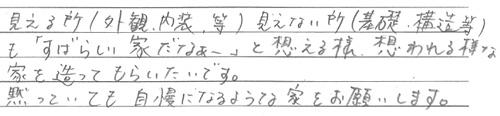 見える所(外観、内装、等)見えない所(基礎、構造等)
も「すばらしい家だなぁ〜」と想える様、想われる様な
家を造ってもらいたいです。
黙っていても自慢になるような家をお願いします。